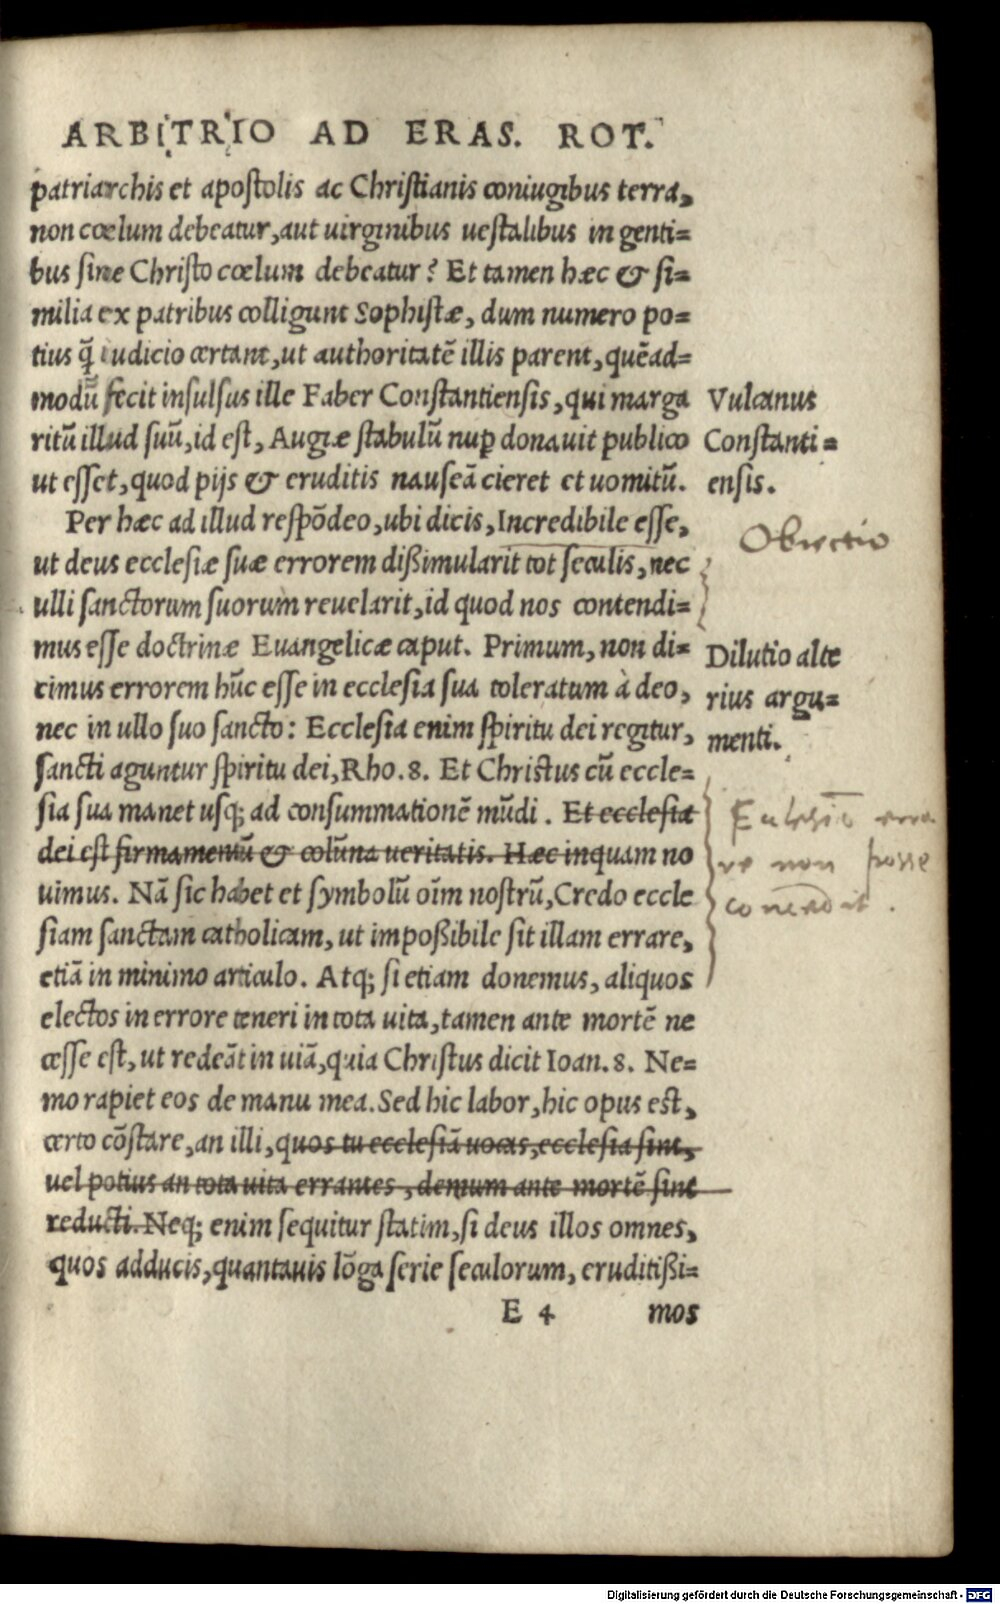 ARBITRIO AD ERAS. ROT.
patriarchis et apostolis ac Christianis coniugibus terra,
non cœlum debeatur, aut uirginibus uestalibus in genti=
bus sine Christo cœlum debeatur? Et tamen hæc & si=
milia ex patribus colligunt Sophistæ, dum numero po=
tius q̃ iudicio certant, ut authoritatẽ illis parent, quẽad=
modũ fecit insulsus ille Faber Constantiensis, qui marga
ritũ illud suũ, id est, Augiæ stabulũ nup̱ donauit publico
ut esset, quod pijs & eruditis nauseã cieret et uomitũ.
Vulcanus
Constanti=
ensis.
Per hæc ad illud respõdeo, ubi dicis, Incredibile esse,
ut deus ecclesiæ suæ errorem dißimularit tot seculis, nec
ulli sanctorum suorum reuelarit, id quod nos contendi=
mus esse doctrinæ Euangelicæ caput. Primum, non di=
cimus errorem hũc esse in ecclesia sua toleratum à deo,
nec in ullo suo sancto: Ecclesia enim spiritu dei regitur,
Obiectio
Dilutio alte
rius argu=
menti.
sancti aguntur spiritu dei, Rho. 8. Et Christus cũ eccle=
sia sua manet usq; ad consummationẽ mũdi. Et ecclesia
dei est firmamentũ & colũna ueritatis. Hæc inquam no
uimus. Nã sic habet et symbolũ oĩm nostrũ, Credo eccle
siam sanctam catholicam, ut impoßibile sit illam errare,
etiã in minimo articulo. Atq; si etiam donemus, aliquos
Ecclesiã erra
re non posse
concedit.
electos in errore teneri in tota uita, tamen ante mortẽ ne
cesse est, ut redeãt in uiã, quia Christus dicit Ioan. 8. Ne=
mo rapiet eos de manu mea. Sed hic labor, hic opus est,
certo cõstare, an illi, quos tu ecclesiã uocas, ecclesia sint,
uel potius an tota uita errantes, demum ante mortẽ sint
reducti. Neq; enim sequitur statim, si deus illos omnes,
quos adducis, quantauis lõga serie seculorum, eruditißi=
E 4 mos
Digitalisierung gefördert durch die Deutsche Forschungsgemeinschaft - DFG